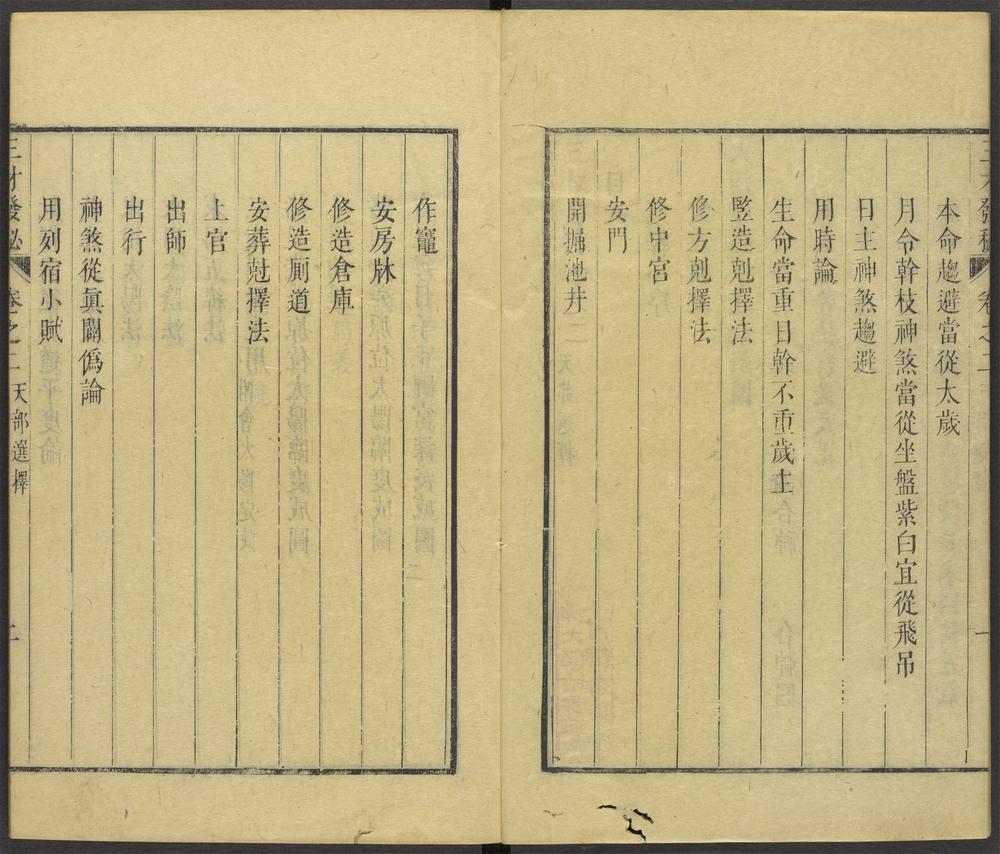 三才發秘 卷之二 一
本命趨避當從太歲
月令幹枝神煞當從坐盤紫白宜從飛吊
日主神煞趨避
用時論
生命當重日幹不重歲主
豎造剋擇法
修方剋擇法
修中宮
安門
開掘池井
作竈
安房牀
修造倉庫
修造厠道
安葬尅擇法
上官
出師
出行
神煞從眞闢僞論
用列宿小賦
三才發秘 卷之二 天部選擇 二